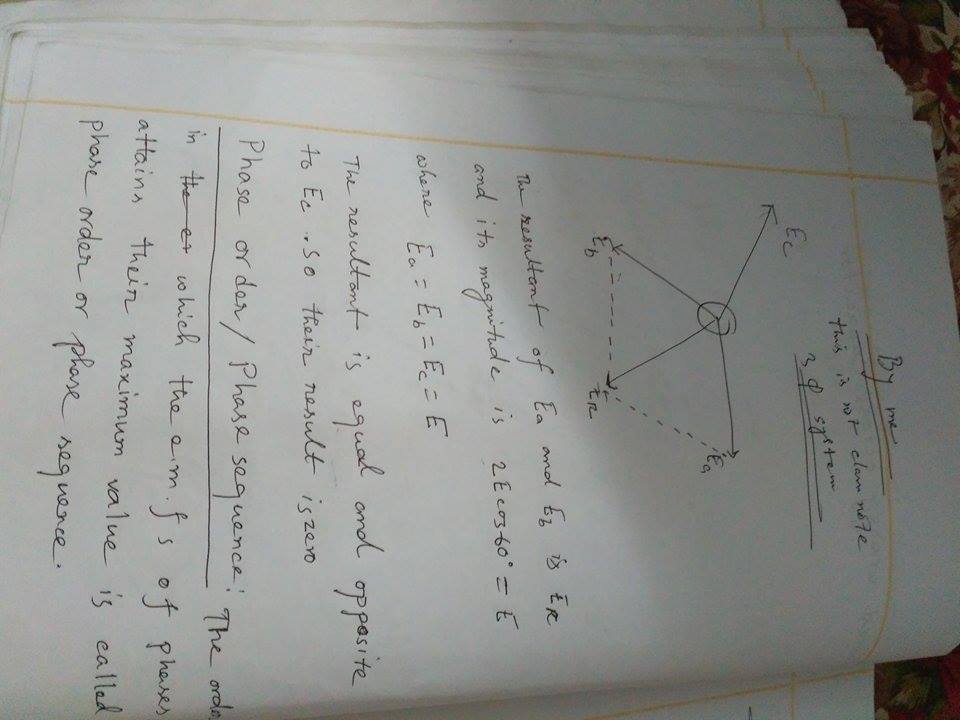 By me
this is not class note
3 φ system
Ec
Ea
Eb
ER
The resultant of Ea and Eb is ER
and its magnitude is 2E cos 60° = E
where Ea = Eb = Ec = E
The resultant is equal and opposite
to Ec . So their result is zero
Phase order / Phase sequence : The order
in the er which the e.m.f s of phases
attains their maximum value is called
phase order or phase sequence.